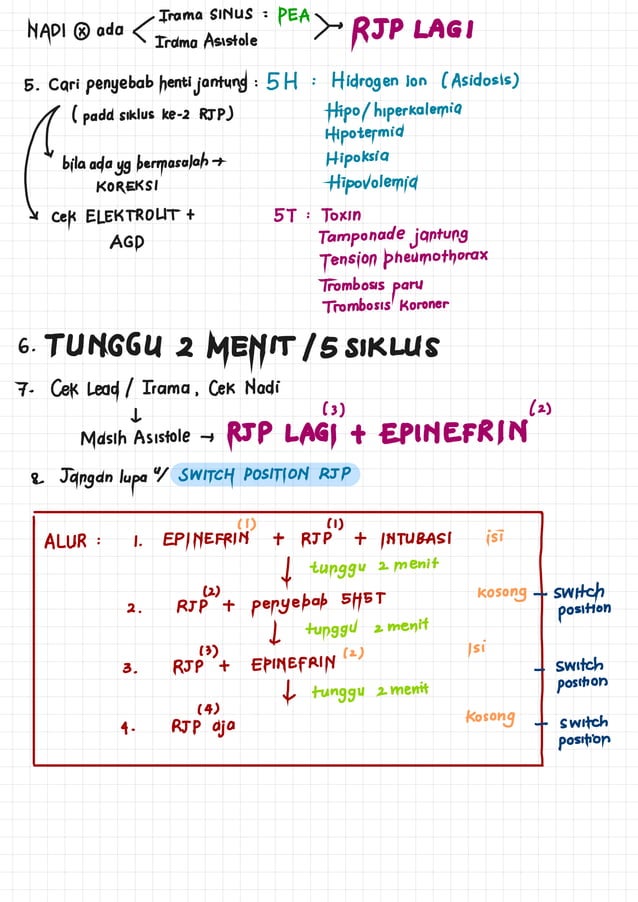 NADI ⊗ ada < Irama SINUS : PEA > RJP LAGI
Irama Asistole
5. Cari penyebab henti jantung : 5H : Hidrogen Ion (Asidosis)
(pada siklus ke-2 RJP) Hipo/hiperkalemia
Hipotermia
bila ada yg bermasalah → Hipoksia
KOREKSI Hipovolemia
cek ELEKTROLIT + 5T : Toxin
AGD Tamponade jantung
Tension pneumothorax
Trombosis paru
Trombosis Koroner
6. TUNGGU 2 MENIT / 5 SIKLUS
7. Cek Lead / Irama, Cek Nadi
↓ (3) (2)
Masih Asistole → RJP LAGI + EPINEFRIN
& Jangan lupa u/ SWITCH POSITION RJP
ALUR : 1. EPINEFRIN (1) + RJP (1) + INTUBASI isi
↓ tunggu 2 menit
2. RJP (2) + penyebab 5H5T kosong → switch position
↓ tunggu 2 menit
3. RJP (3) + EPINEFRIN (2) Isi → switch position
↓ tunggu 2 menit
4. RJP (4) aja Kosong → switch position